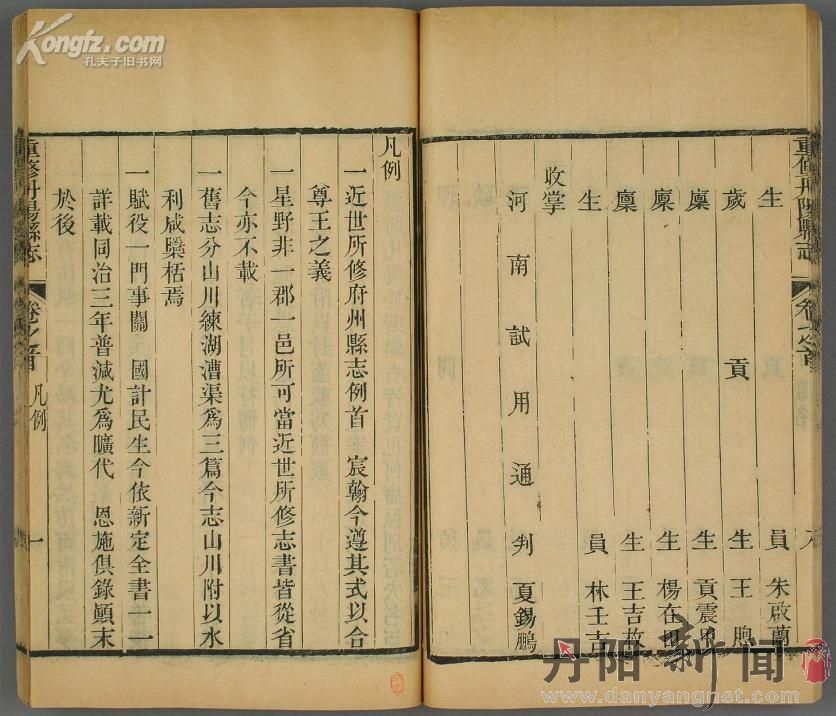 Kongfz.com
孔夫子旧书网
重修丹陽縣志 卷之首
生員 朱啟蘭
歲貢生 王
廩生 貢震
廩生 楊在
廩生 王吉
生員 林壬吉
收掌
河南試用通判 夏錫鵬
凡例
一近世所修府州縣志例首 宸翰今遵其式以合
尊王之義
一星野非一郡一邑所可當近世所修志書皆從省
今亦不載
一舊志分山川練湖漕渠爲三篇今志山川附以水
利咸檃栝焉
一賦役一門事關 國計民生今依新定全書一一
詳載同治三年普減尤爲曠代 恩施俱錄顚末
於後
重修丹陽縣志 卷之首 凡例 一
丹阳新闻
www.danyangnet.com